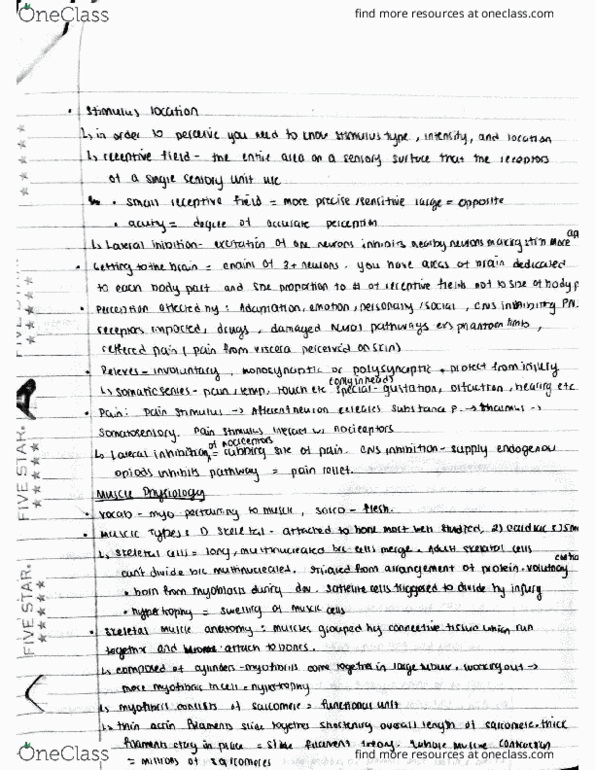 OneClass
find more resources at oneclass.com
• Stimulus location
↳ in order to perceive you need to know stimulus type, intensity, and location
↳ receptive field - the entire area on a sensory surface that the receptors
of a single sensory unit use
• small receptive field = more precise/sensitive large = opposite
• acuity = degree of accurate perception
↳ Lateral inibition - excitation of one neurons inhibits nearby neurons making stim more
• Getting to the brain = chains of 3+ neurons. you have areas of brain dedicated
to each body part and size proportion to # of receptive fields not to size of body p
• Perception affected by: Adaptation, emotion, personality/social, CNS inhibiting PN.
receptors impacted, drugs, damaged neural pathways ex) phantom limb,
reffered pain (pain from viscera perceived on skin)
• Reflexes - involuntary, monosynaptic or polysynaptic + protect from injury
↳ somatic senses - pain, temp, touch etc special (only in head) - gustation, olfaction, hearing etc
• Pain: Pain stimulus → Afferent neuron releases substance P. → thalamus →
somatosensory. Pain stimulus interact w/ nociceptors
↳ Lateral inhibition of nociceptors = rubbing site of pain. CNS inhibition - supply endogenou
opiods inhibits pathway = pain relief.
Muscle Physiology
• Vocab - myo pertaining to muscle, sarco - flesh.
• Muscle Types: 1) skeletal - attached to bone most well studied, 2) cardiac
↳ skeletal cells = long, multinucleated b/c cells merge. Adult skeletal cells
can't divide b/c multinucleated. Striated from arrangement of protein. Voluntary
• born from myoblasts during dev. satellite cells triggered to divide by injury
• hypertrophy = swelling of muscle cells
• Skeletal muscle anatomy: muscles grouped by connective tissue which run
together and attach to bones.
↳ composed of cylinders - myofibrils come together in large tubule, working out →
more myofibrils in cell = hypertrophy
↳ myofibril consists of sarcomere = functional unit
↳ thin actin filaments slide together shortening overall length of sarcomere. thick
filaments stay in place = slide filament theory. whole muscle contraction
= millions of sarcomeres
FIVE STAR.
FIVE STAR.
OneClass
find more resources at oneclass.com